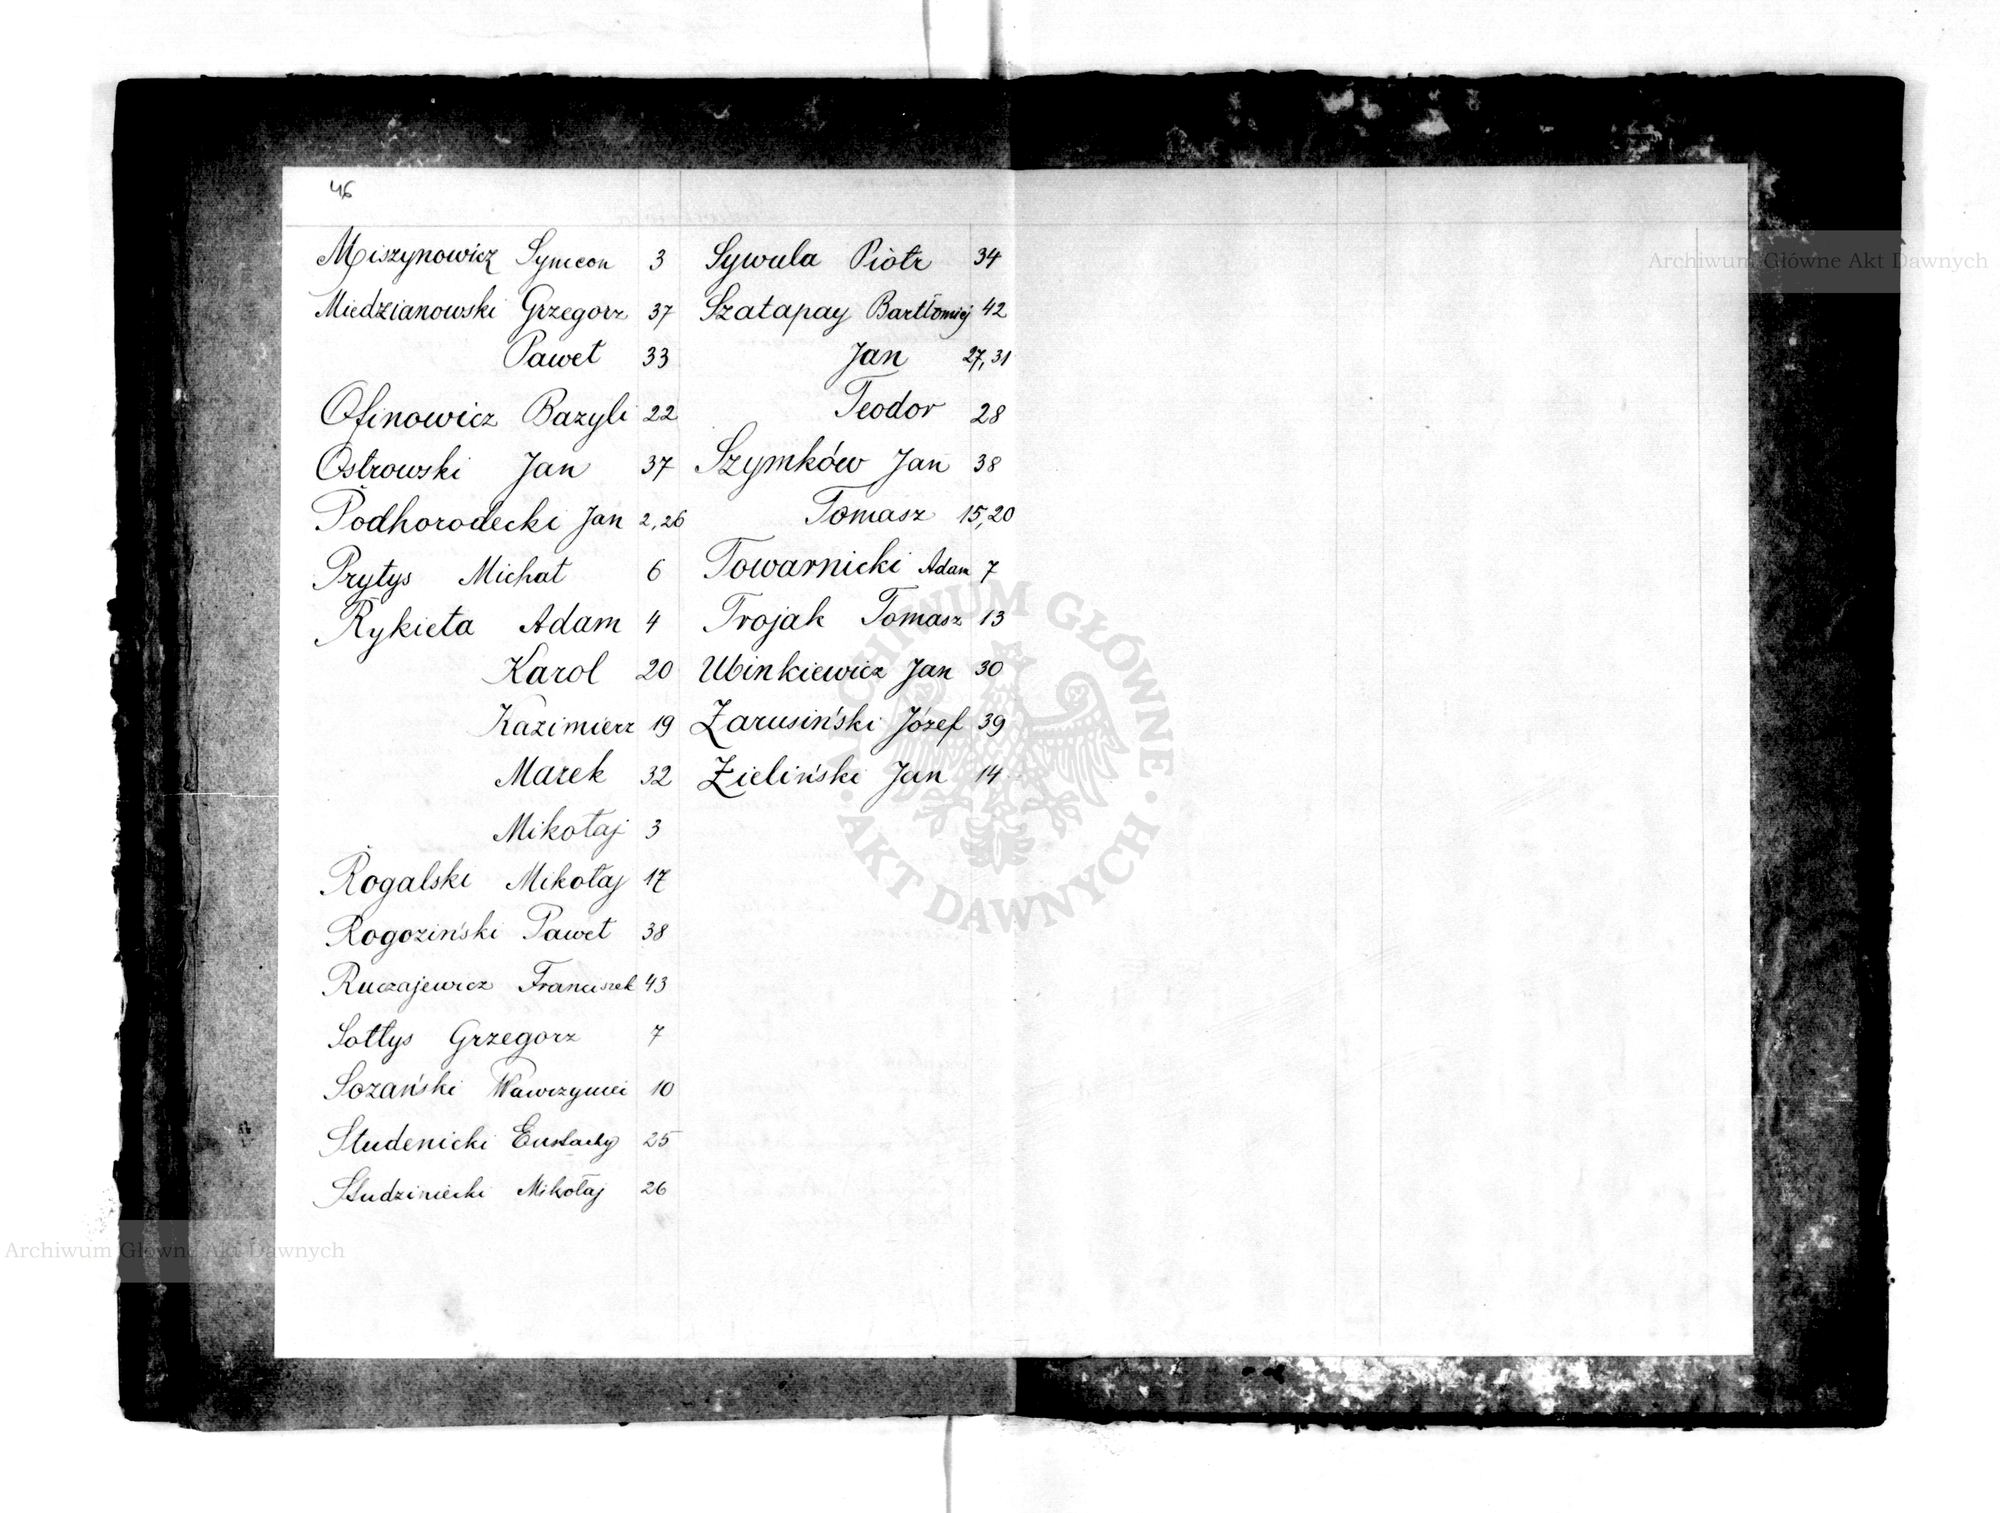 46
Miszynowicz Symeon 3
Miedzianowski Grzegorz 37
Paweł 33
Ofinowicz Bazyli 22
Ostrowski Jan 37
Podhorodecki Jan 2, 26
Prytys Michał 6
Rykieta Adam 4
Karol 20
Kazimierz 19
Marek 32
Mikołaj 3
Rogalski Mikołaj 17
Rogoziński Paweł 38
Ruczajewicz Franciszek 43
Sołtys Grzegorz 7
Sozański 10
Studenicki Eustachy 25
Studziniecki Mikołaj 26
Sywula Piotr 34
Szałapay Bartłomiej 42
Jan 27, 31
Teodor 28
Szymków Jan 38
Tomasz 15, 20
Towarnicki Adam 7
Trojak Tomasz 13
Ubinkiewicz Jan 30
Zarusiński Józef 39
Zieliński Jan 14
Archiwum Główne Akt Dawnych
ARCHIWUM GŁÓWNE
AKT DAWNYCH
Archiwum Główne Akt Dawnych